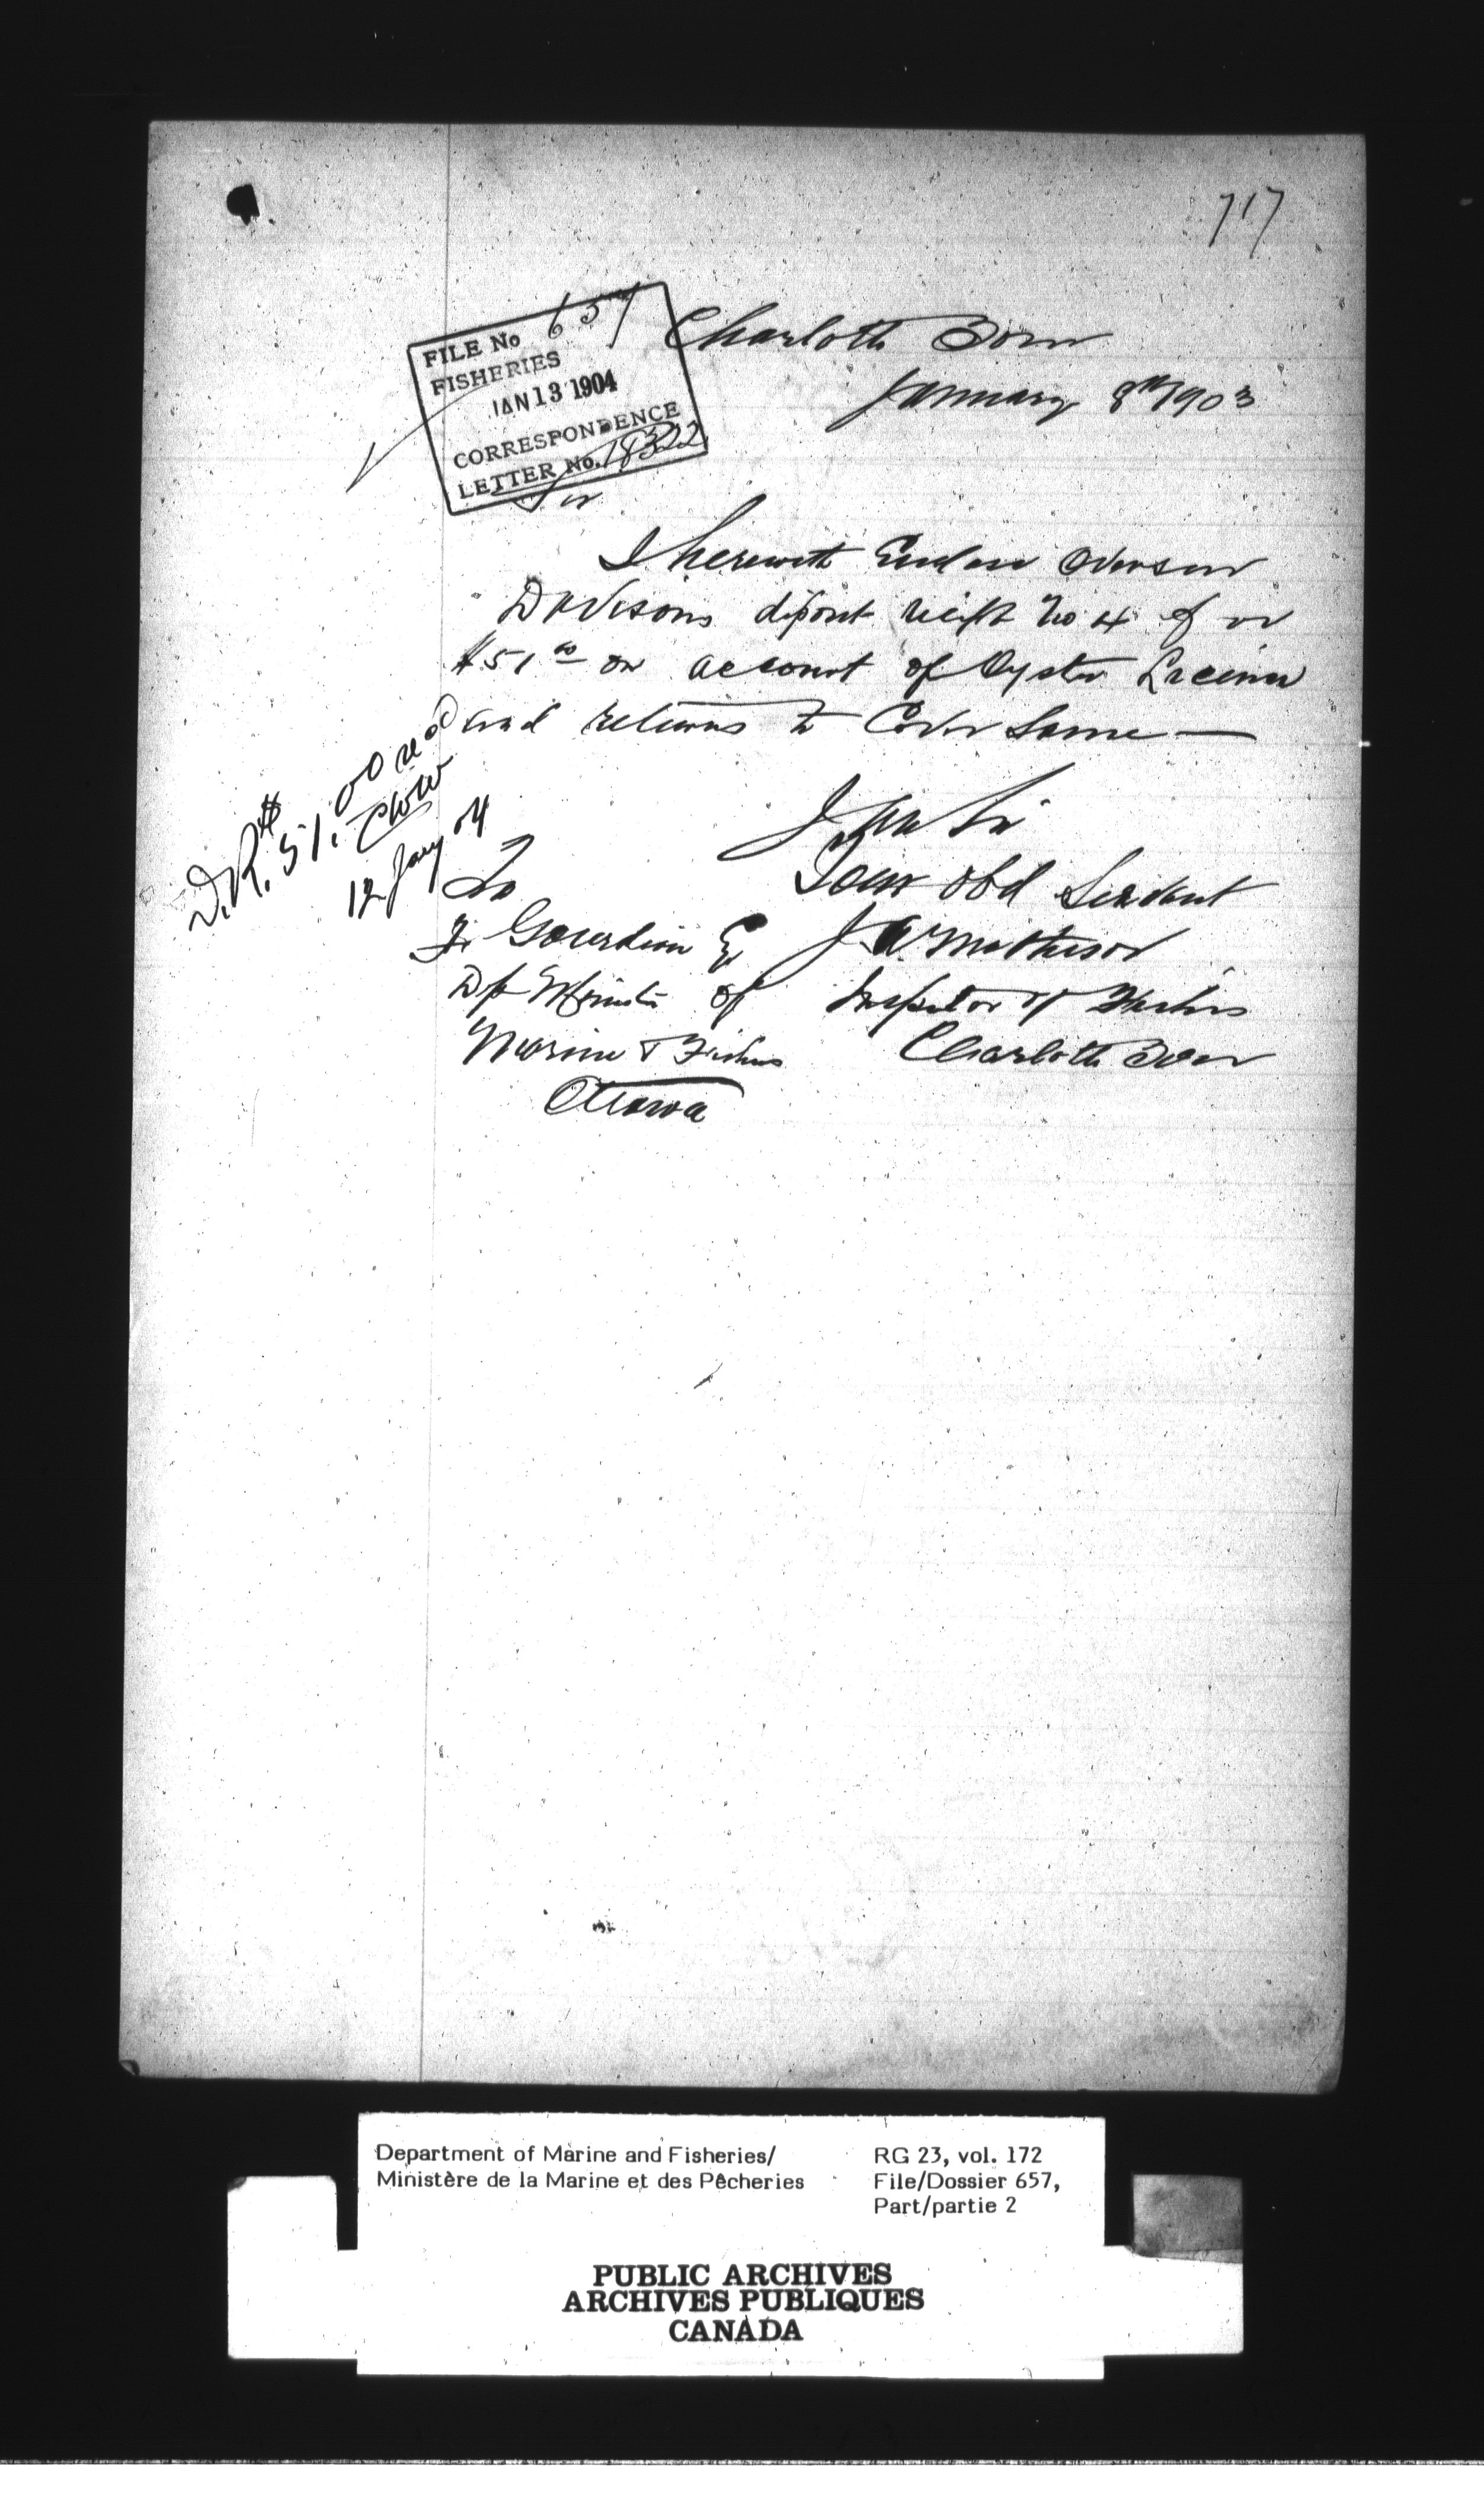 717
FILE No 657
FISHERIES
JAN 13 1904
CORRESPONDENCE
LETTER No. 18322
Charlotte Town
January 8th 1903
Sir
I herewith Enclose Overseer
Davisons deposit receipt No 4 for
$51 00 on account of Oyster License
and returns to Cover Same —
D.R. $51.00 rec'd
12 Jany 04
I am Sir
Your obd Servant
J A Matheson
Inspector of Fisheries
Charlotte Town
To
F. Gourdeau Esq
Dp Minister of
Marine & Fisheries
Ottawa
Department of Marine and Fisheries/
Ministère de la Marine et des Pêcheries
RG 23, vol. 172
File/Dossier 657,
Part/partie 2
PUBLIC ARCHIVES
ARCHIVES PUBLIQUES
CANADA